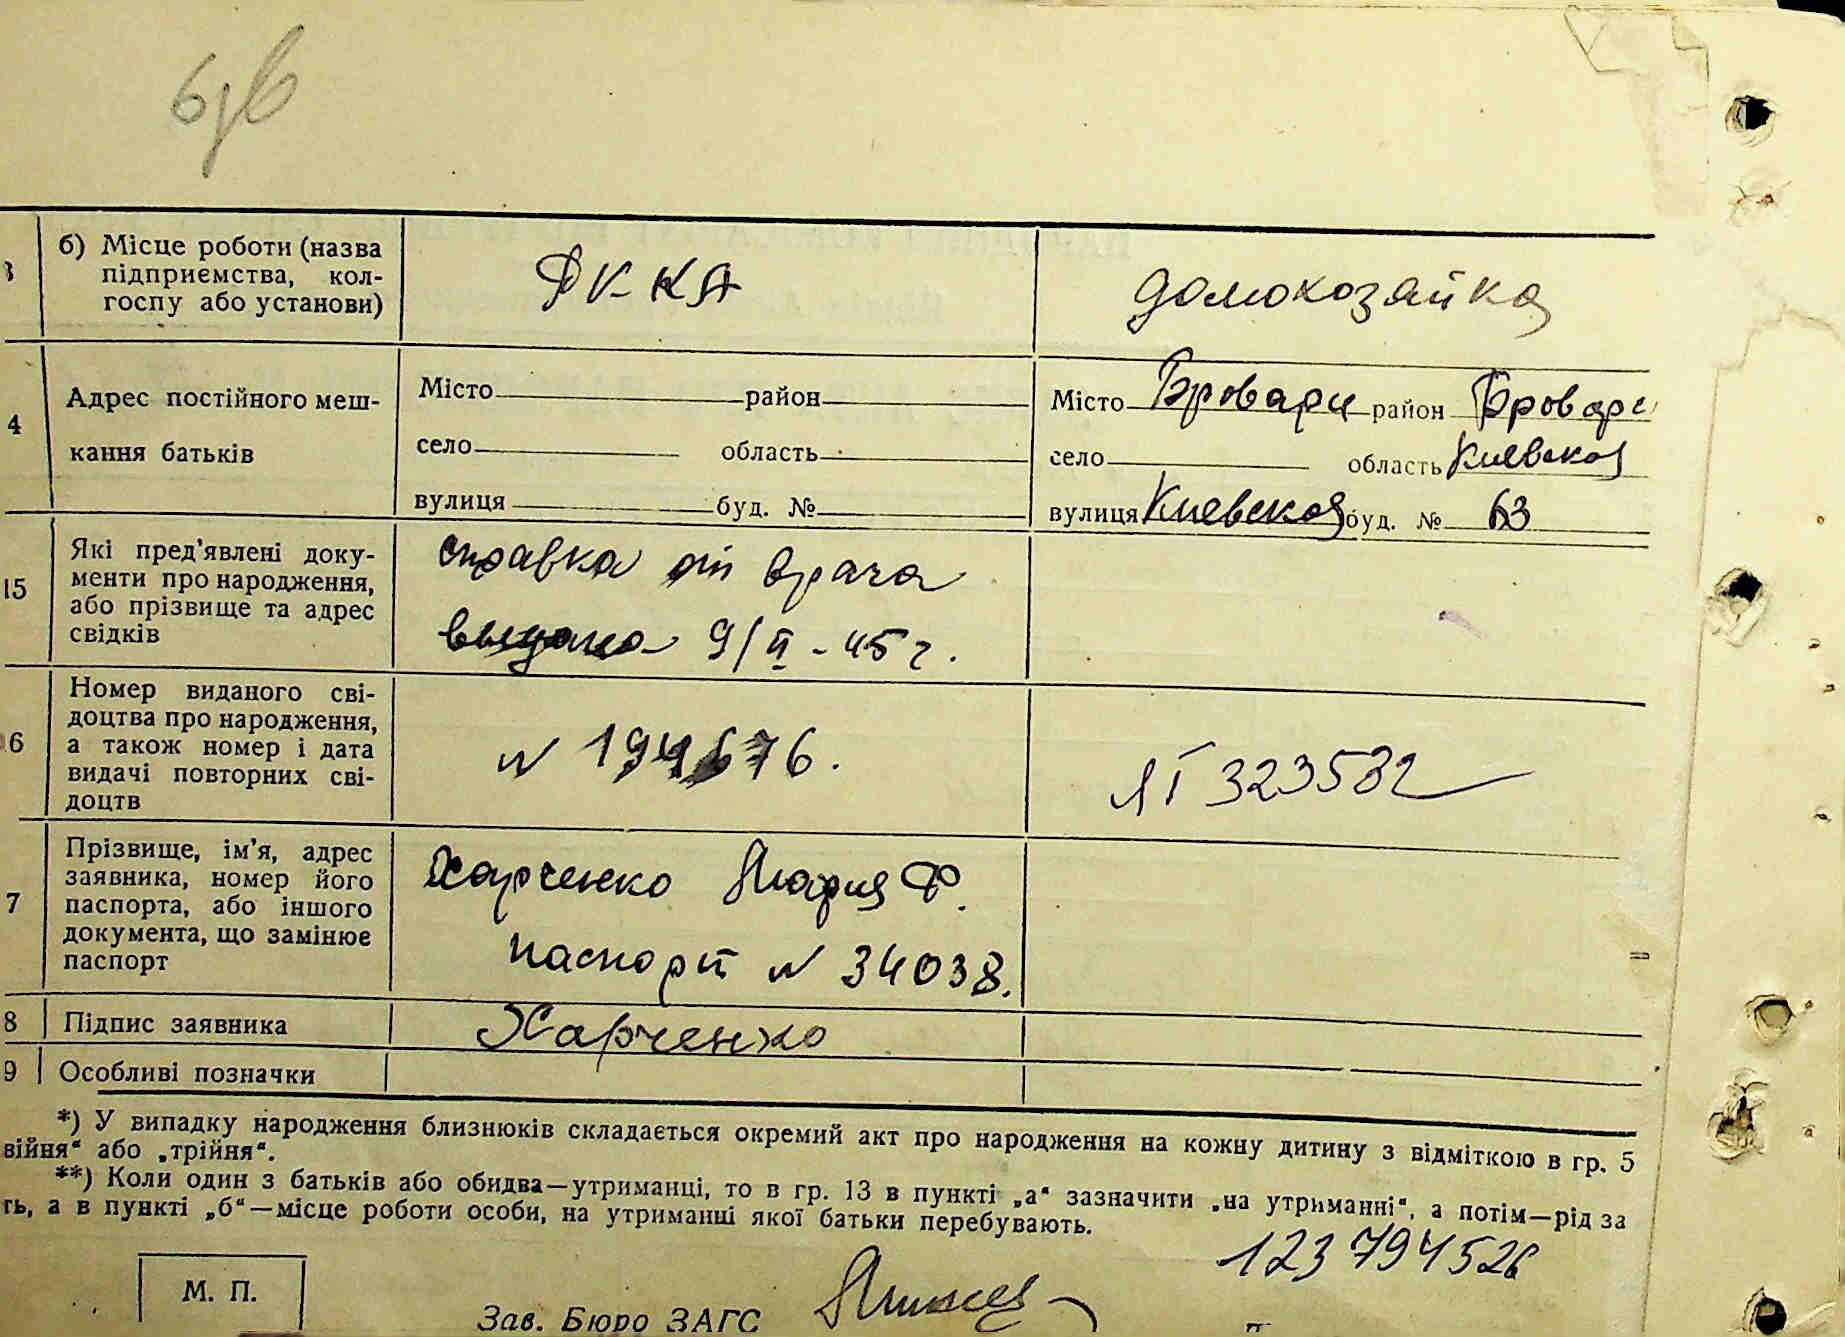 3 б) Місце роботи (назва підприємства, колгоспу або установи) РККА домохозяйка
4 Адрес постійного мешкання батьків
Місто район Місто Бровари район Бровари
село область село область Киевская
вулиця буд. № вулиця Киевская буд. № 63
15 Які пред'явлені документи про народження, або прізвище та адрес свідків
справка от врача
выдана 9/II - 45 г.
16 Номер виданого свідоцтва про народження, а також номер і дата видачі повторних свідоцтв
N 194676. 323532
7 Прізвище, ім'я, адрес заявника, номер його паспорта, або іншого документа, що замінює паспорт
Харченко Мария Ф.
паспорт N 34038.
8 Підпис заявника Харченко
9 Особливі позначки
*) У випадку народження близнюків складається окремий акт про народження на кожну дитину з відміткою в гр. 5
війня" або „трійня".
**) Коли один з батьків або обидва—утриманці, то в гр. 13 в пункті „а" зазначити „на утриманні", а потім—рід за
ть, а в пункті „б"—місце роботи особи, на утриманні якої батьки перебувають.
123 794526
М. П.
Зав. Бюро ЗАГС